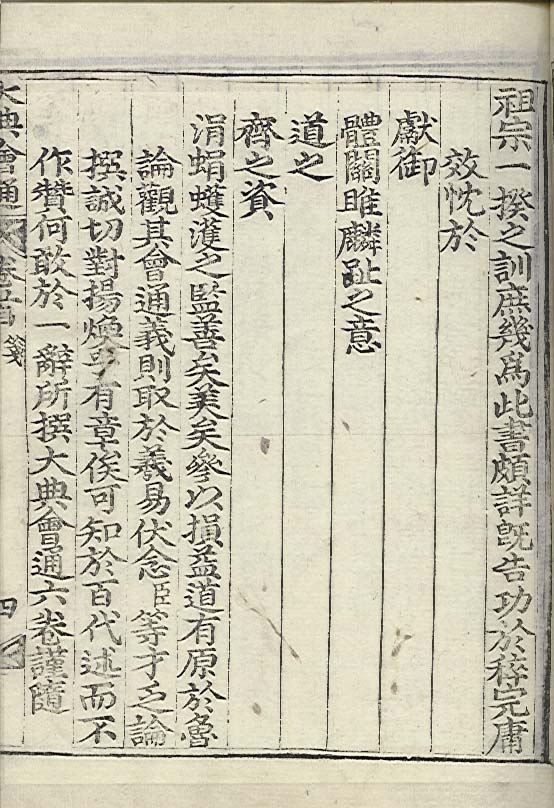 祖宗一揆之訓庶幾爲此書頗詳旣告功於稡完庸
效忱於
獻御
體關雎麟趾之意
道之
齊之資
涓蠲蠖濩之監善矣美矣參以損益道有原於魯
論觀其會通義則取於羲易伏念臣等才乏論
撰誠切對揚煥乎有章俟可知於百代述而不
作贊何敢於一辭所撰大典會通六卷謹隨
大典會通 卷首 箋 四